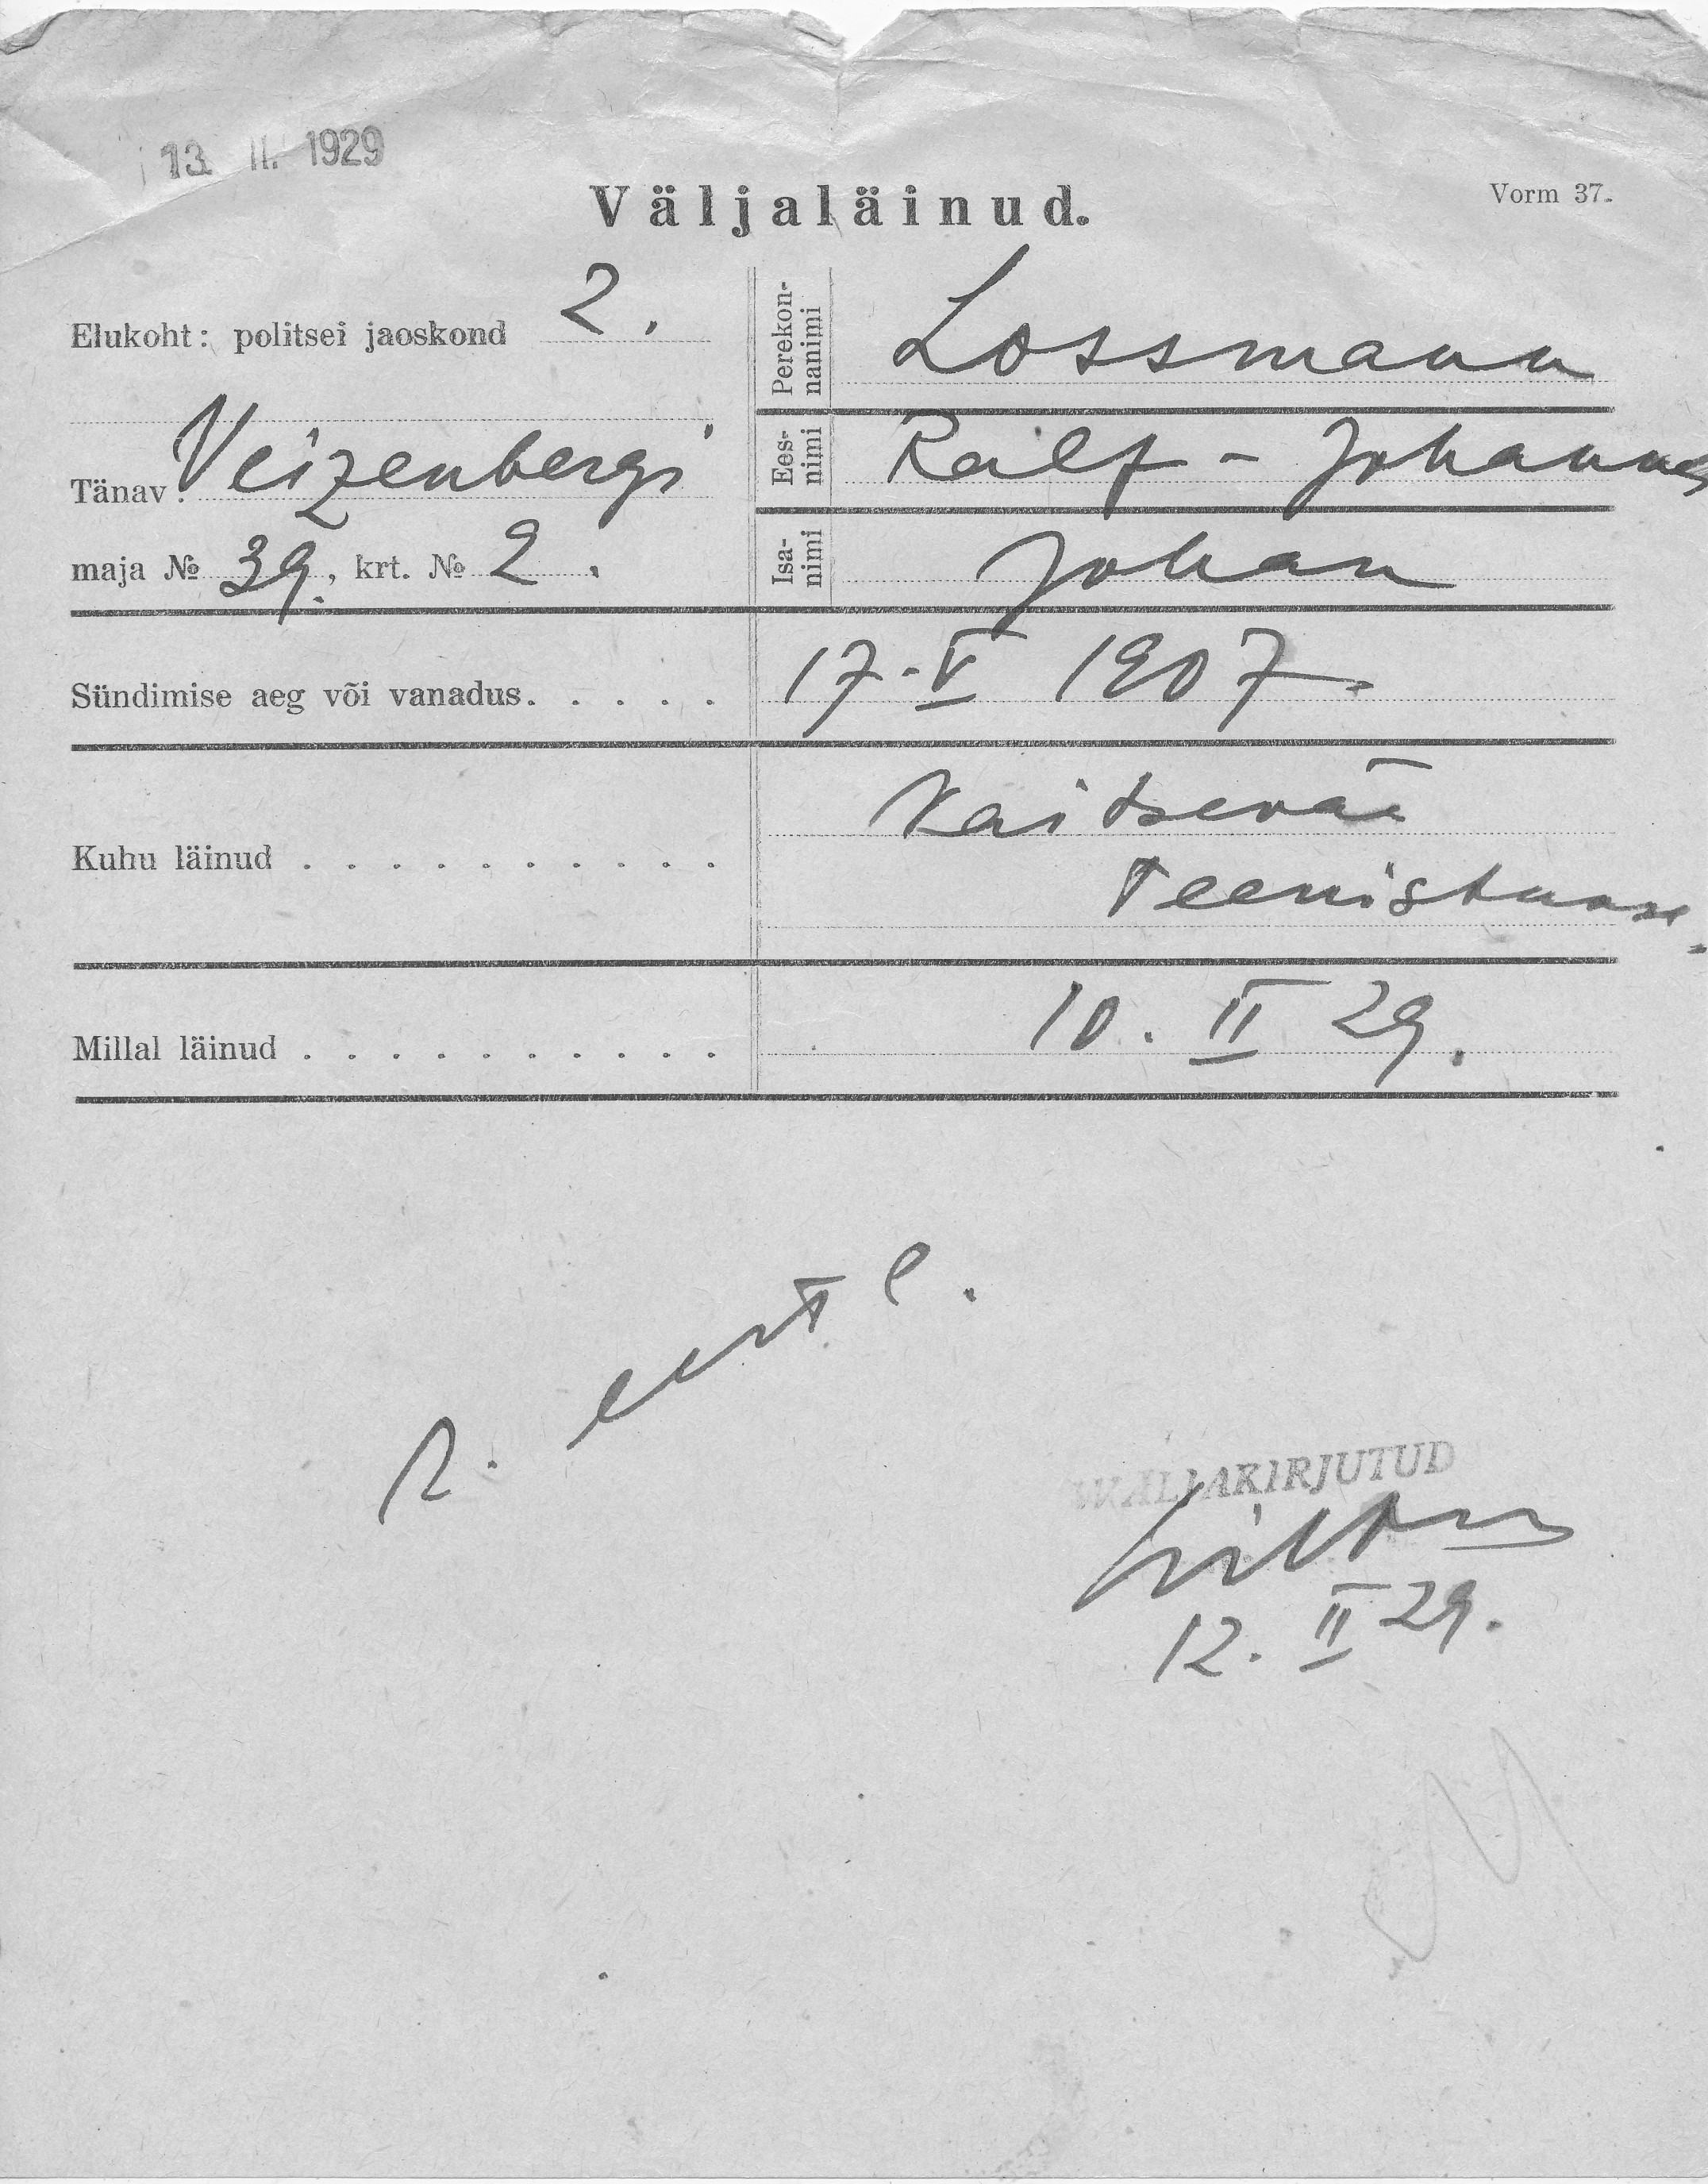 13. II. 1929
Väljaläinud.
Vorm 37.
Elukoht: politsei jaoskond 2.
Tänav: Veizenbergi
maja № 39., krt. № 2.
Perekon-
nanimi
Lossmann
Ees-
nimi
Ralf - Johannes
Isa-
nimi
Johan
Sündimise aeg või vanadus. . . . . 17. V 1907.
Kuhu läinud . . . . . . . . . . Kaitseväe
Teenistuse.
Millal läinud . . . . . . . . . . 10. II 29.
WÄLJAKIRJUTUD
12. II 29.